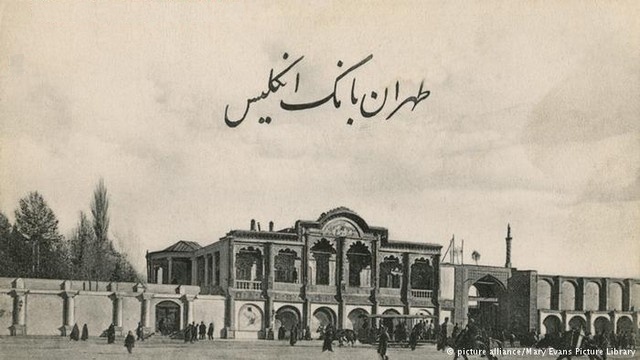 طهران بانک انگلیس
© picture alliance/Mary Evans Picture Library